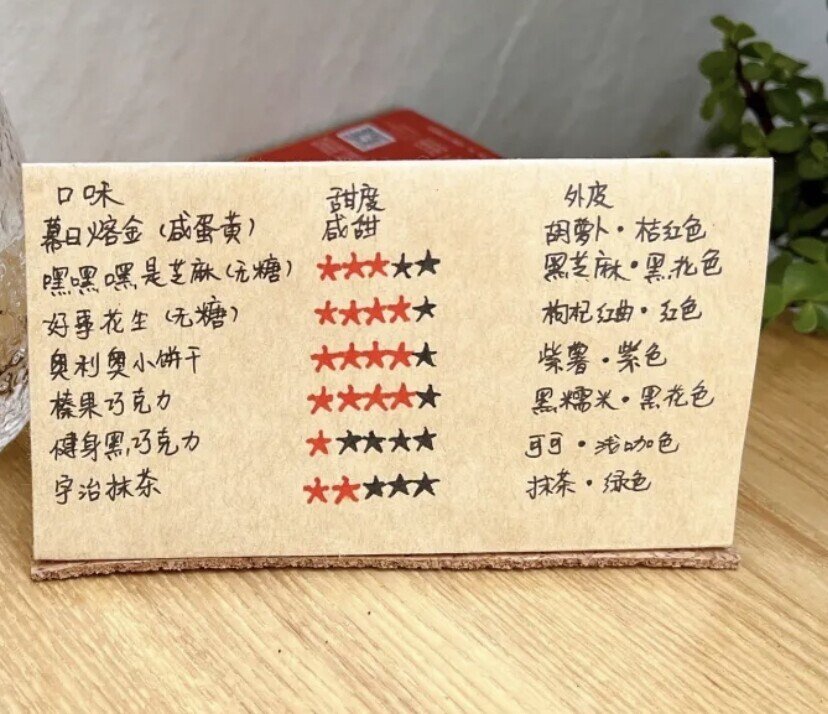 口味 甜度 外皮
暮日熔金(咸蛋黄) 咸甜 胡萝卜·桔红色
嘿嘿嘿是芝麻(无糖) ★★★★★ 黑芝麻·黑花色
好事花生(无糖) ★★★★★ 枸杞红曲·红色
奥利奥小饼干 ★★★★★ 紫薯·紫色
榛果巧克力 ★★★★★ 黑糯米·黑花色
健身黑巧克力 ★★★★★ 可可·浅咖色
宇治抹茶 ★★★★★ 抹茶·绿色